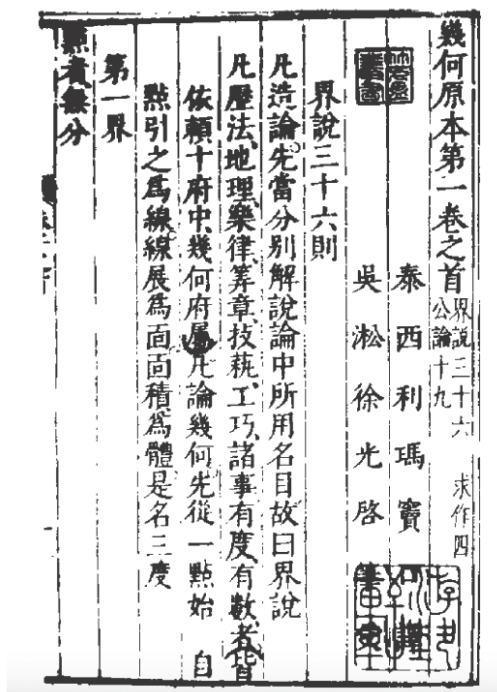 幾何原本第一卷之首 界說三十六 求作四
公論十九
泰西利瑪竇
吳淞徐光啓
界說三十六則
凡造論先當分別解說論中所用名目故曰界說
凡歷法、地理、樂律、筭章、技藝、工巧、諸事有度、有數、者皆
依賴十府中、幾何府屬、凡論幾何先從一點始 自
點引之爲線線展爲面面積爲體是名三度
第一界
點者無分